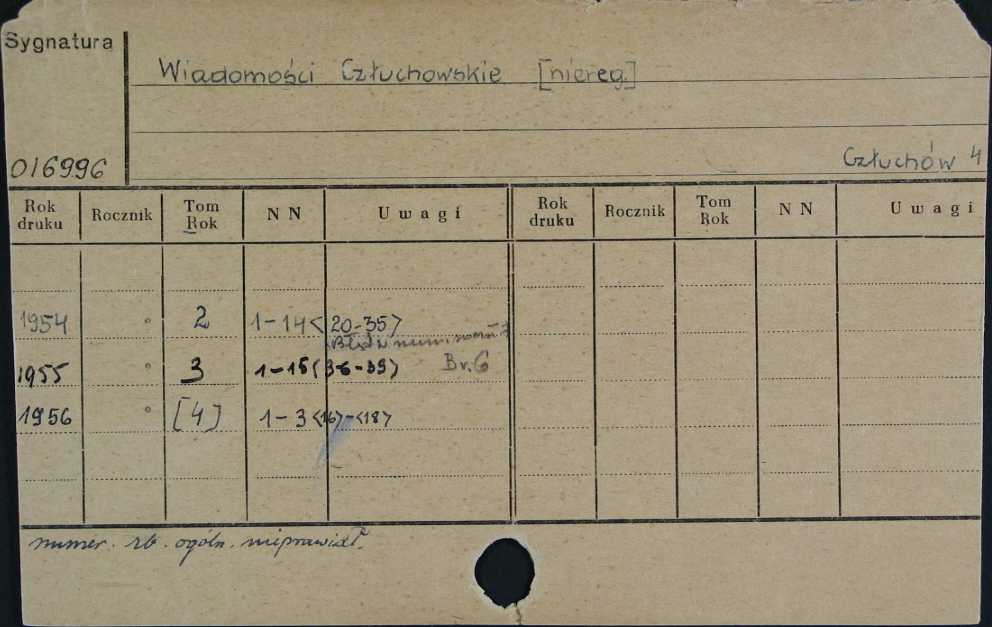 Sygnatura
Wiadomości Człuchowskie [niereg.]
016996
Człuchów 4
Rok druku Rocznik Tom Rok N N Uwagi Rok druku Rocznik Tom Rok N N Uwagi
1954 2 1-14<20-35>
Br. 6
1955 3 1-15(36-39)
1956 [4] 1-3<16>-<18>
numer. rb. ogóln. nieprawidł.